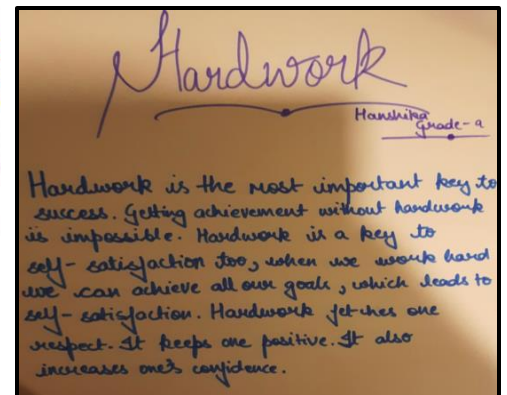 Hardwork
Hanshika
Grade-9
Hardwork is the most important key to
success. Getting achievement without hardwork
is impossible. Hardwork is a key to
self-satisfaction too, when we work hard
we can achieve all our goals, which leads to
self-satisfaction. Hardwork fetches one
respect. It keeps one positive. It also
increases one's confidence.